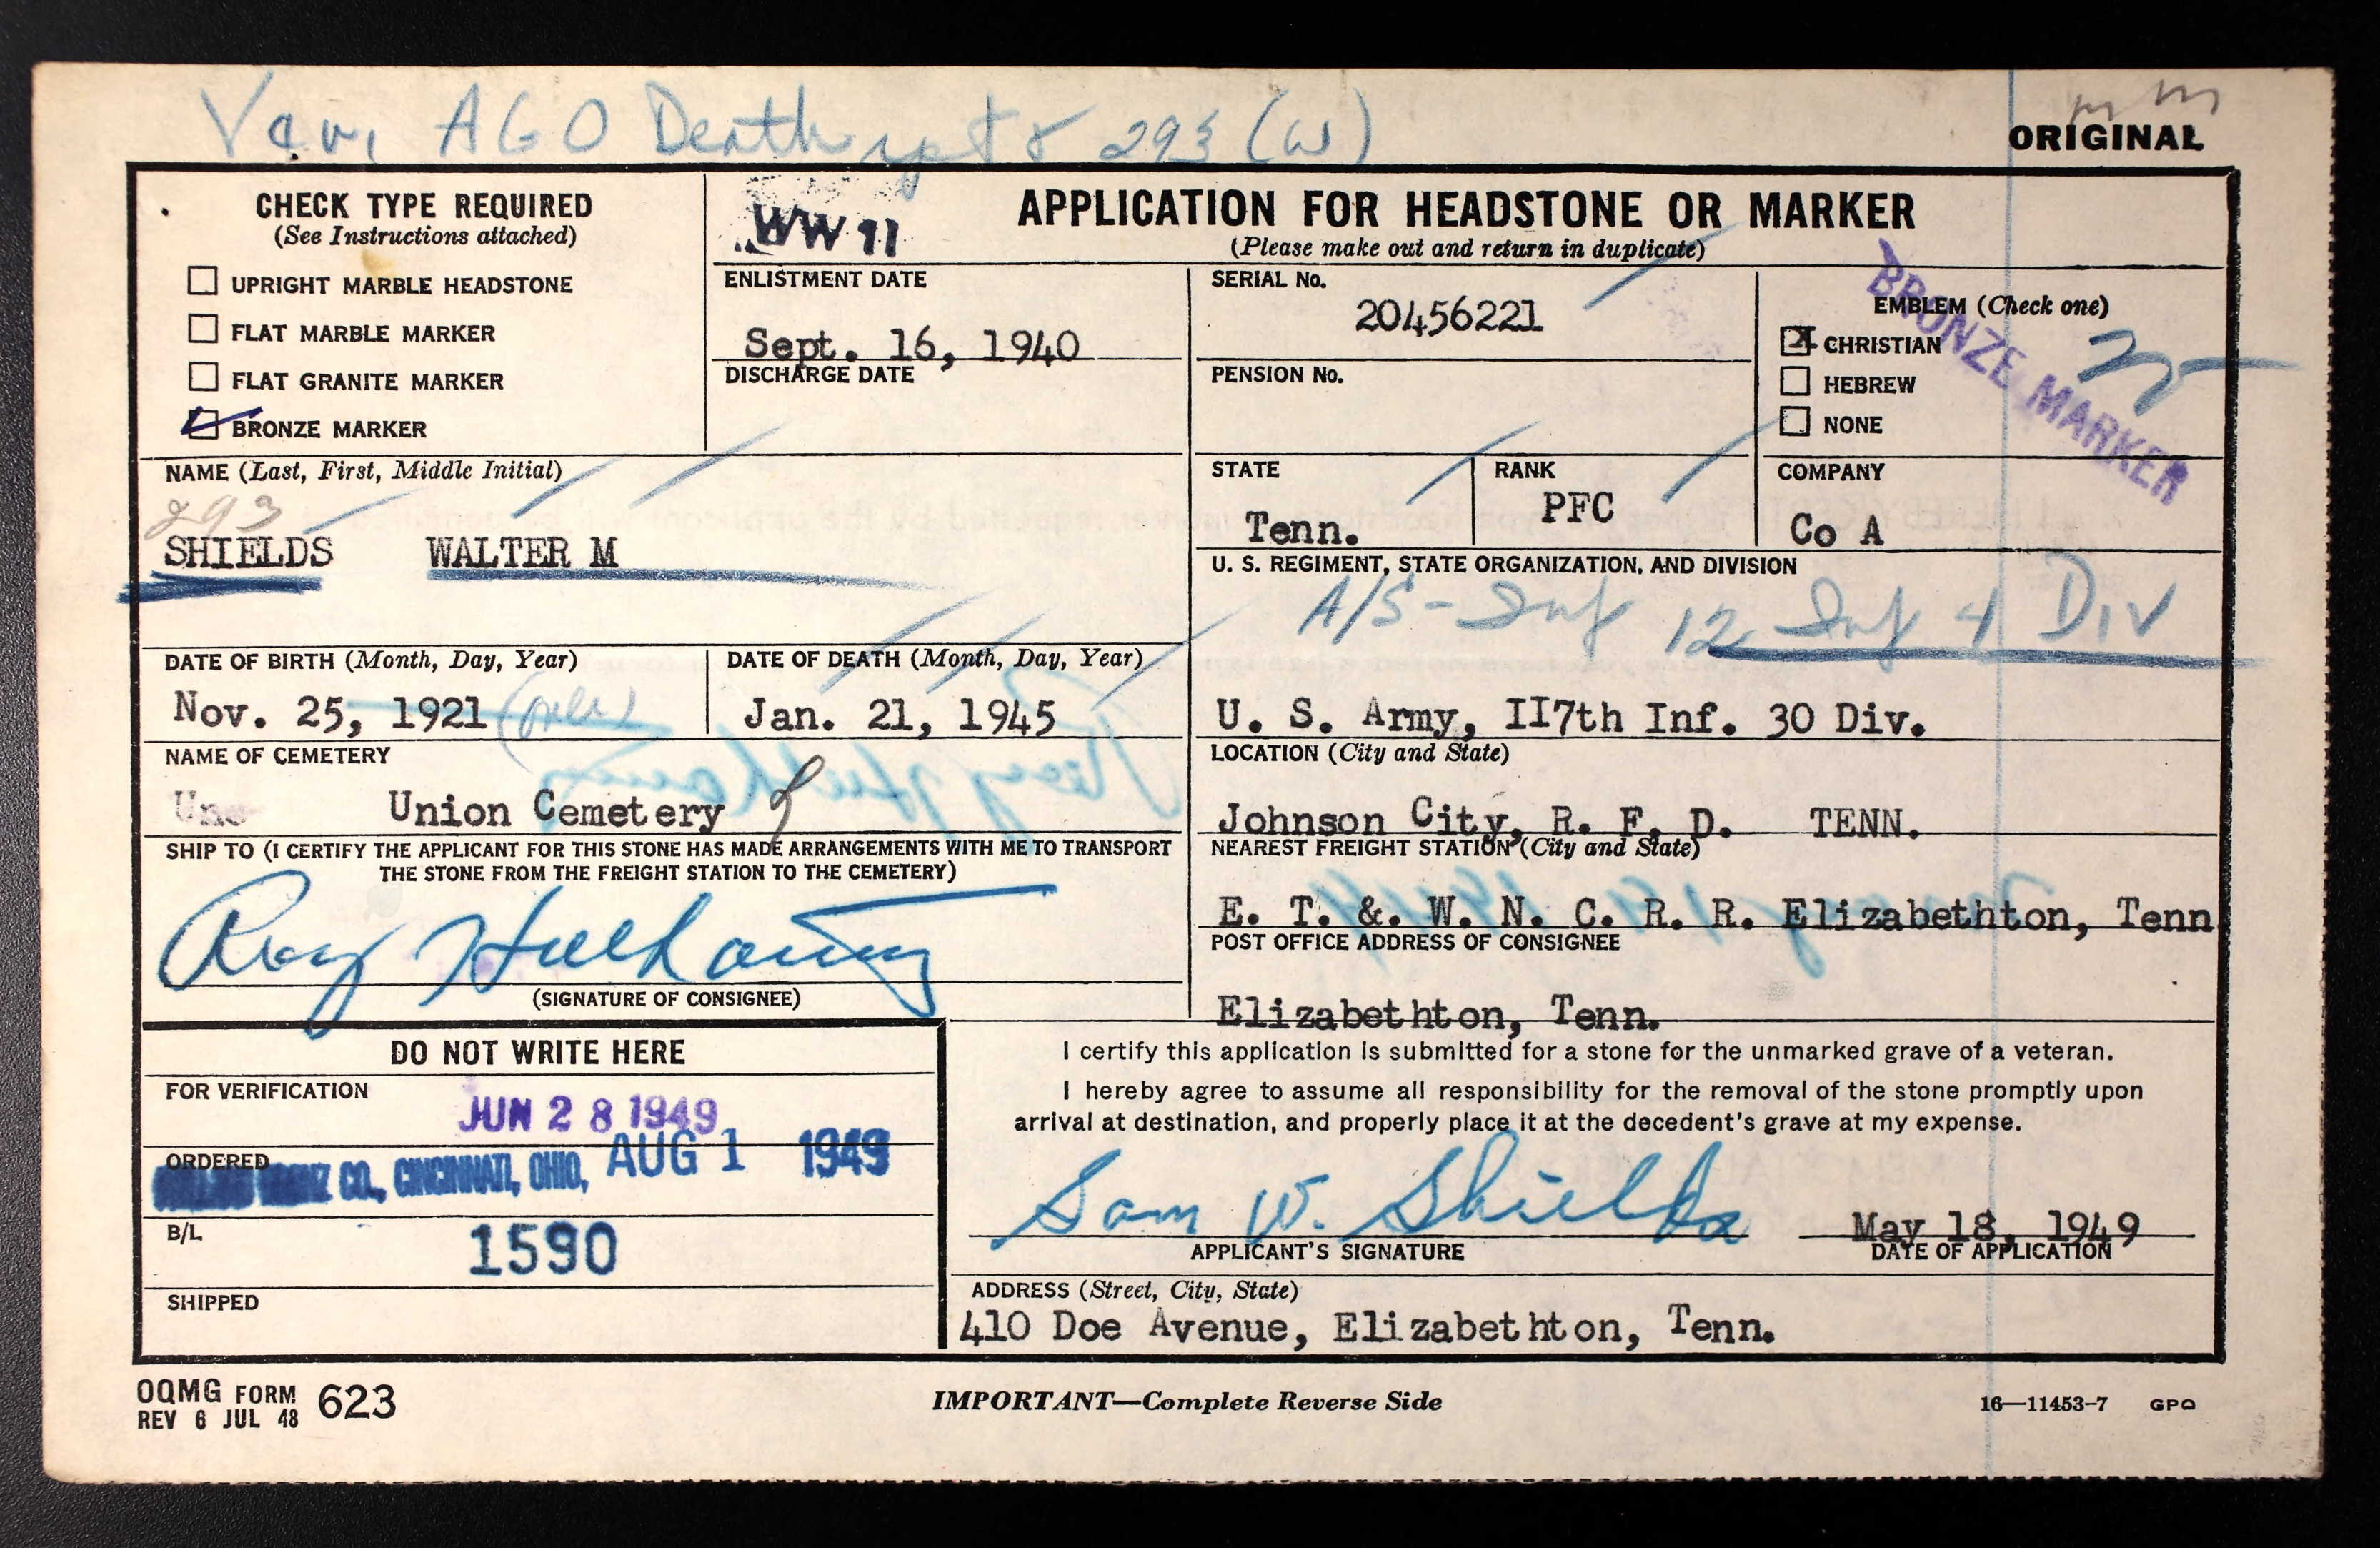 AGO Death rpt & 293 (W)
ORIGINAL
CHECK TYPE REQUIRED
(See Instructions attached)
UPRIGHT MARBLE HEADSTONE
FLAT MARBLE MARKER
FLAT GRANITE MARKER
BRONZE MARKER
WW II
APPLICATION FOR HEADSTONE OR MARKER
(Please make out and return in duplicate)
ENLISTMENT DATE
Sept. 16, 1940
DISCHARGE DATE
SERIAL No.
20456221
PENSION No.
EMBLEM (Check one)
X CHRISTIAN
HEBREW
NONE
BRONZE MARKER
NAME (Last, First, Middle Initial)
293
SHIELDS WALTER M
STATE
Tenn.
RANK
PFC
COMPANY
Co A
U. S. REGIMENT, STATE ORGANIZATION, AND DIVISION
A/S - Inf 12 Inf 4 Div
U. S. Army, II7th Inf. 30 Div.
DATE OF BIRTH (Month, Day, Year)
Nov. 25, 1921
DATE OF DEATH (Month, Day, Year)
Jan. 21, 1945
NAME OF CEMETERY
Une Union Cemetery
LOCATION (City and State)
Johnson City, R. F. D. TENN.
SHIP TO (I CERTIFY THE APPLICANT FOR THIS STONE HAS MADE ARRANGEMENTS WITH ME TO TRANSPORT
THE STONE FROM THE FREIGHT STATION TO THE CEMETERY)
Ray
(SIGNATURE OF CONSIGNEE)
NEAREST FREIGHT STATION (City and State)
E. T. &. W. N. C. R. R. Elizabethton, Tenn
POST OFFICE ADDRESS OF CONSIGNEE
Elizabethton, Tenn.
DO NOT WRITE HERE
FOR VERIFICATION
JUN 28 1949
ORDERED
CO., CINCINNATI, OHIO, AUG 1 1949
B/L
1590
SHIPPED
I certify this application is submitted for a stone for the unmarked grave of a veteran.
I hereby agree to assume all responsibility for the removal of the stone promptly upon
arrival at destination, and properly place it at the decedent's grave at my expense.
Sam W. Shields
APPLICANT'S SIGNATURE
May 18, 1949
DATE OF APPLICATION
ADDRESS (Street, City, State)
410 Doe Avenue, Elizabethton, Tenn.
OQMG FORM 623
REV 6 JUL 48
IMPORTANT—Complete Reverse Side
16—11453-7 GPO